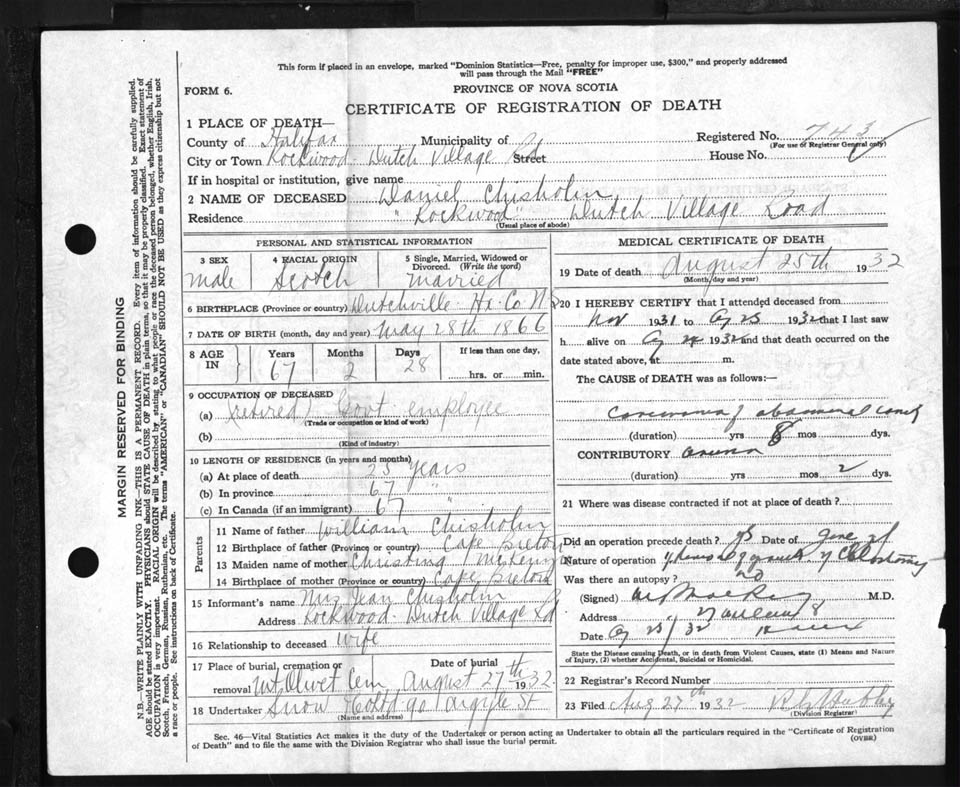 This form if placed in an envelope, marked "Dominion Statistics—Free, penalty for improper use, $300," and properly addressed
will pass through the Mail "FREE"
FORM 6.
PROVINCE OF NOVA SCOTIA
CERTIFICATE OF REGISTRATION OF DEATH
1 PLACE OF DEATH—
County of Halifax Municipality of
Registered No. 743
(For use of Registrar General only)
City or Town Rockwood Dutch Village Rd Street House No.
If in hospital or institution, give name
2 NAME OF DECEASED Daniel Chisholm
Residence "Rockwood" Dutch Village Road
(Usual place of abode)
PERSONAL AND STATISTICAL INFORMATION
3 SEX 4 RACIAL ORIGIN 5 Single, Married, Widowed or
Divorced. (Write the word)
male Scotch married
6 BIRTHPLACE (Province or country) Dutchville Hx. Co. N.S.
7 DATE OF BIRTH (month, day and year) May 28th 1866
8 AGE IN Years Months Days If less than one day,
67 2 28 hrs. or min.
9 OCCUPATION OF DECEASED
(a) (retired) Govt employee
(Trade or occupation or kind of work)
(b)
(Kind of industry)
10 LENGTH OF RESIDENCE (in years and months)
(a) At place of death 25 years
(b) In province 67 "
(c) In Canada (if an immigrant) 67 "
Parents
11 Name of father William Chisholm
12 Birthplace of father (Province or country) Cape Breton
13 Maiden name of mother Christing McKenzie
14 Birthplace of mother (Province or country) Cape Breton
15 Informant's name Mrs Jean Chisholm
Address Rockwood Dutch Village Rd
16 Relationship to deceased wife
17 Place of burial, cremation or Date of burial
removal Mt Olivet Cem August 27th 1932
18 Undertaker Snow & Co Ltd 90 Argyle St
(Name and address)
MEDICAL CERTIFICATE OF DEATH
19 Date of death August 25th 1932
(Month, day and year)
20 I HEREBY CERTIFY that I attended deceased from
Nov 1931 to Ag 25 1932 that I last saw
h alive on Ag 24 1932 and that death occurred on the
date stated above, at m.
The CAUSE of DEATH was as follows:—
Carcinoma of abdominal cavity
(duration) yrs 8 mos dys.
CONTRIBUTORY
(duration) yrs mos 2 dys.
21 Where was disease contracted if not at place of death?
Did an operation precede death? yes Date of
Nature of operation Colostomy
Was there an autopsy? no
(Signed) M.D.
Address
Date Ag 25/32
State the Disease causing Death, or in death from Violent Causes, state (1) Means and Nature
of Injury, (2) whether Accidental, Suicidal or Homicidal.
22 Registrar's Record Number
23 Filed Aug 27th 1932
(Division Registrar)
Sec. 46—Vital Statistics Act makes it the duty of the Undertaker or person acting as Undertaker to obtain all the particulars required in the "Certificate of Registration
of Death" and to file the same with the Division Registrar who shall issue the burial permit. (OVER)
MARGIN RESERVED FOR BINDING
N.B.—WRITE PLAINLY WITH UNFADING INK—THIS IS A PERMANENT RECORD. Every item of information should be carefully supplied.
AGE should be stated EXACTLY. PHYSICIANS should STATE CAUSE OF DEATH in plain terms, so that it may be properly classified. Exact statement of
OCCUPATION is very important. RACIAL ORIGIN will be described by stating to what people or race the deceased person belonged, whether English, Irish,
Scotch, French, German, Russian, Ruthenian, etc. The terms "AMERICAN" or "CANADIAN" SHOULD NOT BE USED as they express citizenship but not
a race or people. See instructions on back of Certificate.